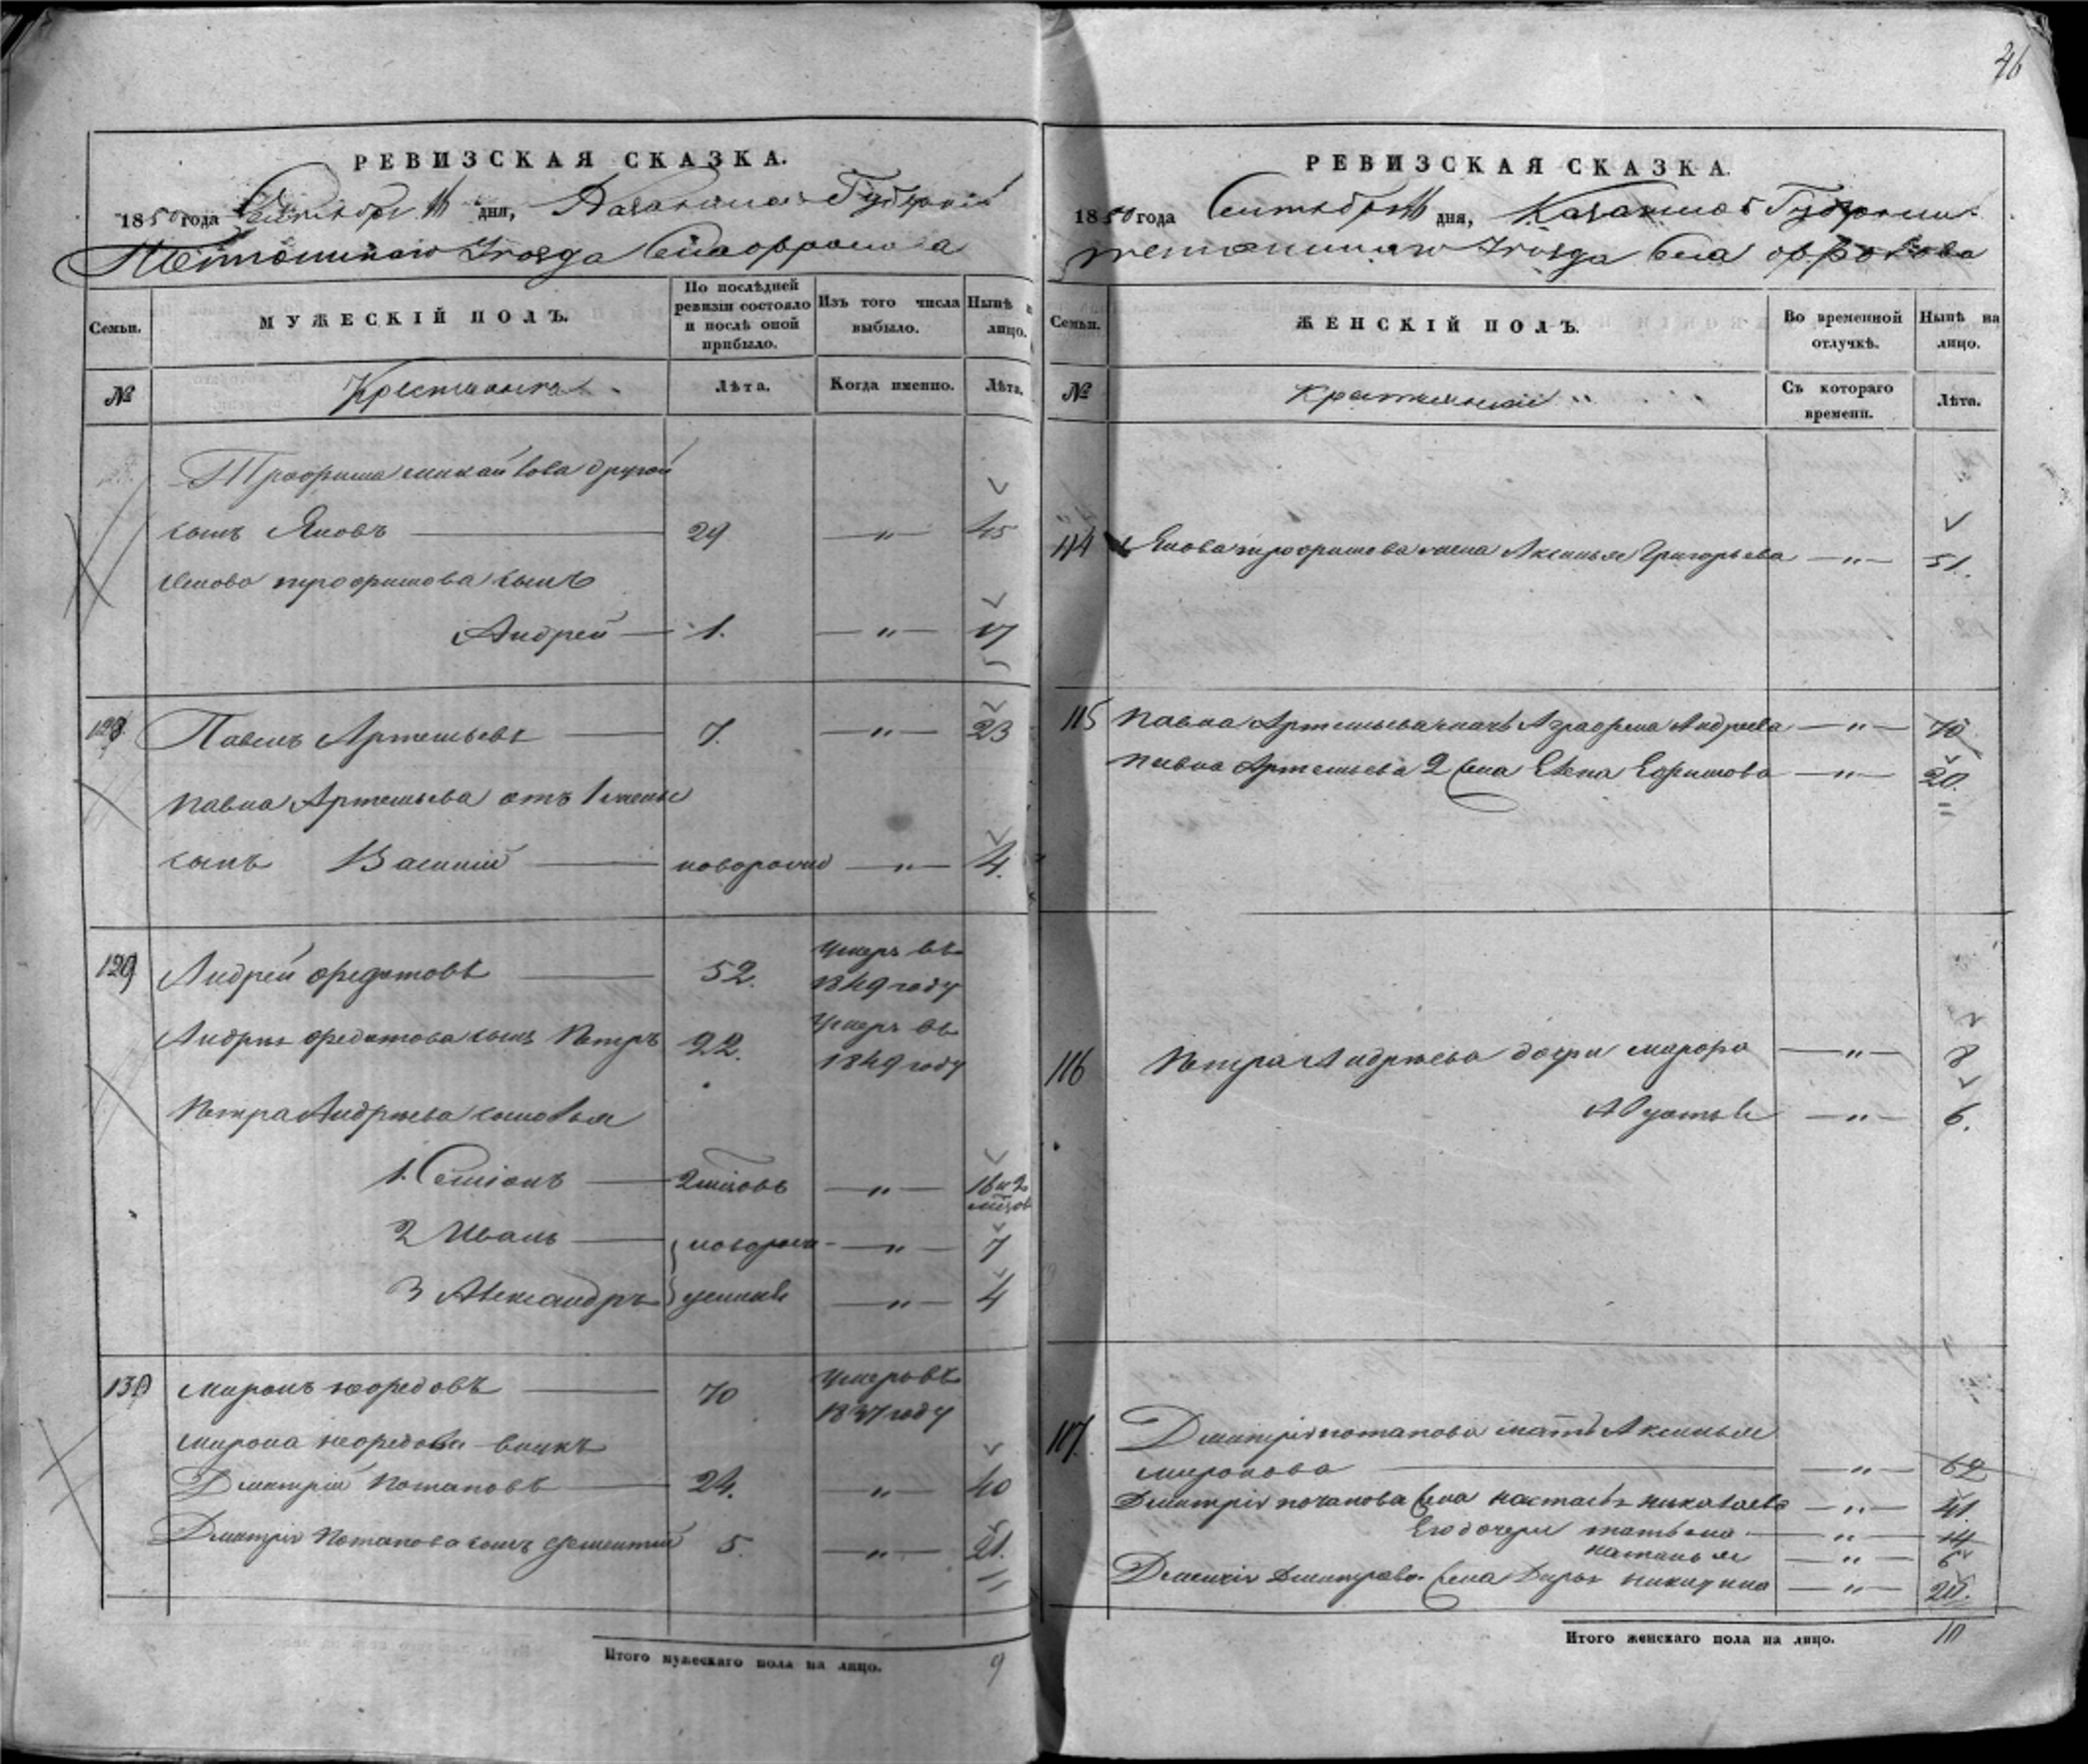 46
РЕВИЗСКАЯ СКАЗКА.
1850 года Сентября 16 дня, Казанской Губернии
Тетюшскаго Уѣзда Села
Семьи.
МУЖЕСКІЙ ПОЛЪ.
По послѣдней ревизіи состояло и послѣ оной прибыло.
Изъ того числа выбыло.
Нынѣ на лицо.
№
Крестьянъ
Лѣта.
Когда именно.
Лѣта.
Трофима Михайлова другой
сынъ Яковъ — 29 — „ — 45
Якова Трофимова сынъ
Андрей — 1. — „ — 17
128 Павелъ Артемьевъ — 7. — „ — 23
Павла Артемьева отъ 1 жены
сынъ Василій — новорожд — „ — 4.
129 Андрей Федотовъ — 52. умеръ въ
1849 году
Андрея Федотова сынъ Петръ 22. Умеръ въ
1849 году
Петра Андреева сыновья
1. Семіонъ — 2 мѣсовъ — „ — 16 и 2
мѣсов
2 Иванъ — новорож- — „ — 7
3 Александръ денные — „ — 4
130 Миронъ Нефедовъ — 70 Умеръ въ
1837 году
Мирона Нефедова внукъ
Дмитрій Потаповъ — 24. — „ — 40
Дмитрія Потапова сынъ 5. — „ — 21.
Итого мужескаго пола на лицо. 9
РЕВИЗСКАЯ СКАЗКА.
1850 года Сентября 16 дня, Казанской Губернии
Тетюшскаго Уѣзда Села
Семьи.
ЖЕНСКІЙ ПОЛЪ.
Во временной отлучкѣ.
Нынѣ на лицо.
№
Крестьянъ
Съ котораго времени.
Лѣта.
114 Якова Трофимова жена Аксинья Григорьева — „ — 51.
115 Павла Артемьева мать Аграфена Андреева — „ — 70
Павла Артемьева 2 жена Елена Ефимова — „ — 20.
116 Петра Андреева дочри Марфа — „ — 8
Авдотья — „ — 6.
117. Дмитрія Потапова мать Аксинья
Миронова — „ — 62
Дмитрія Потапова жена Настасья Николаева — „ — 41.
Его дочери Татьяна — „ — 14
Наталья — „ — 6
Дмитрева жена Дарья Никитина — „ — 20.
Итого женскаго пола на лицо. 10